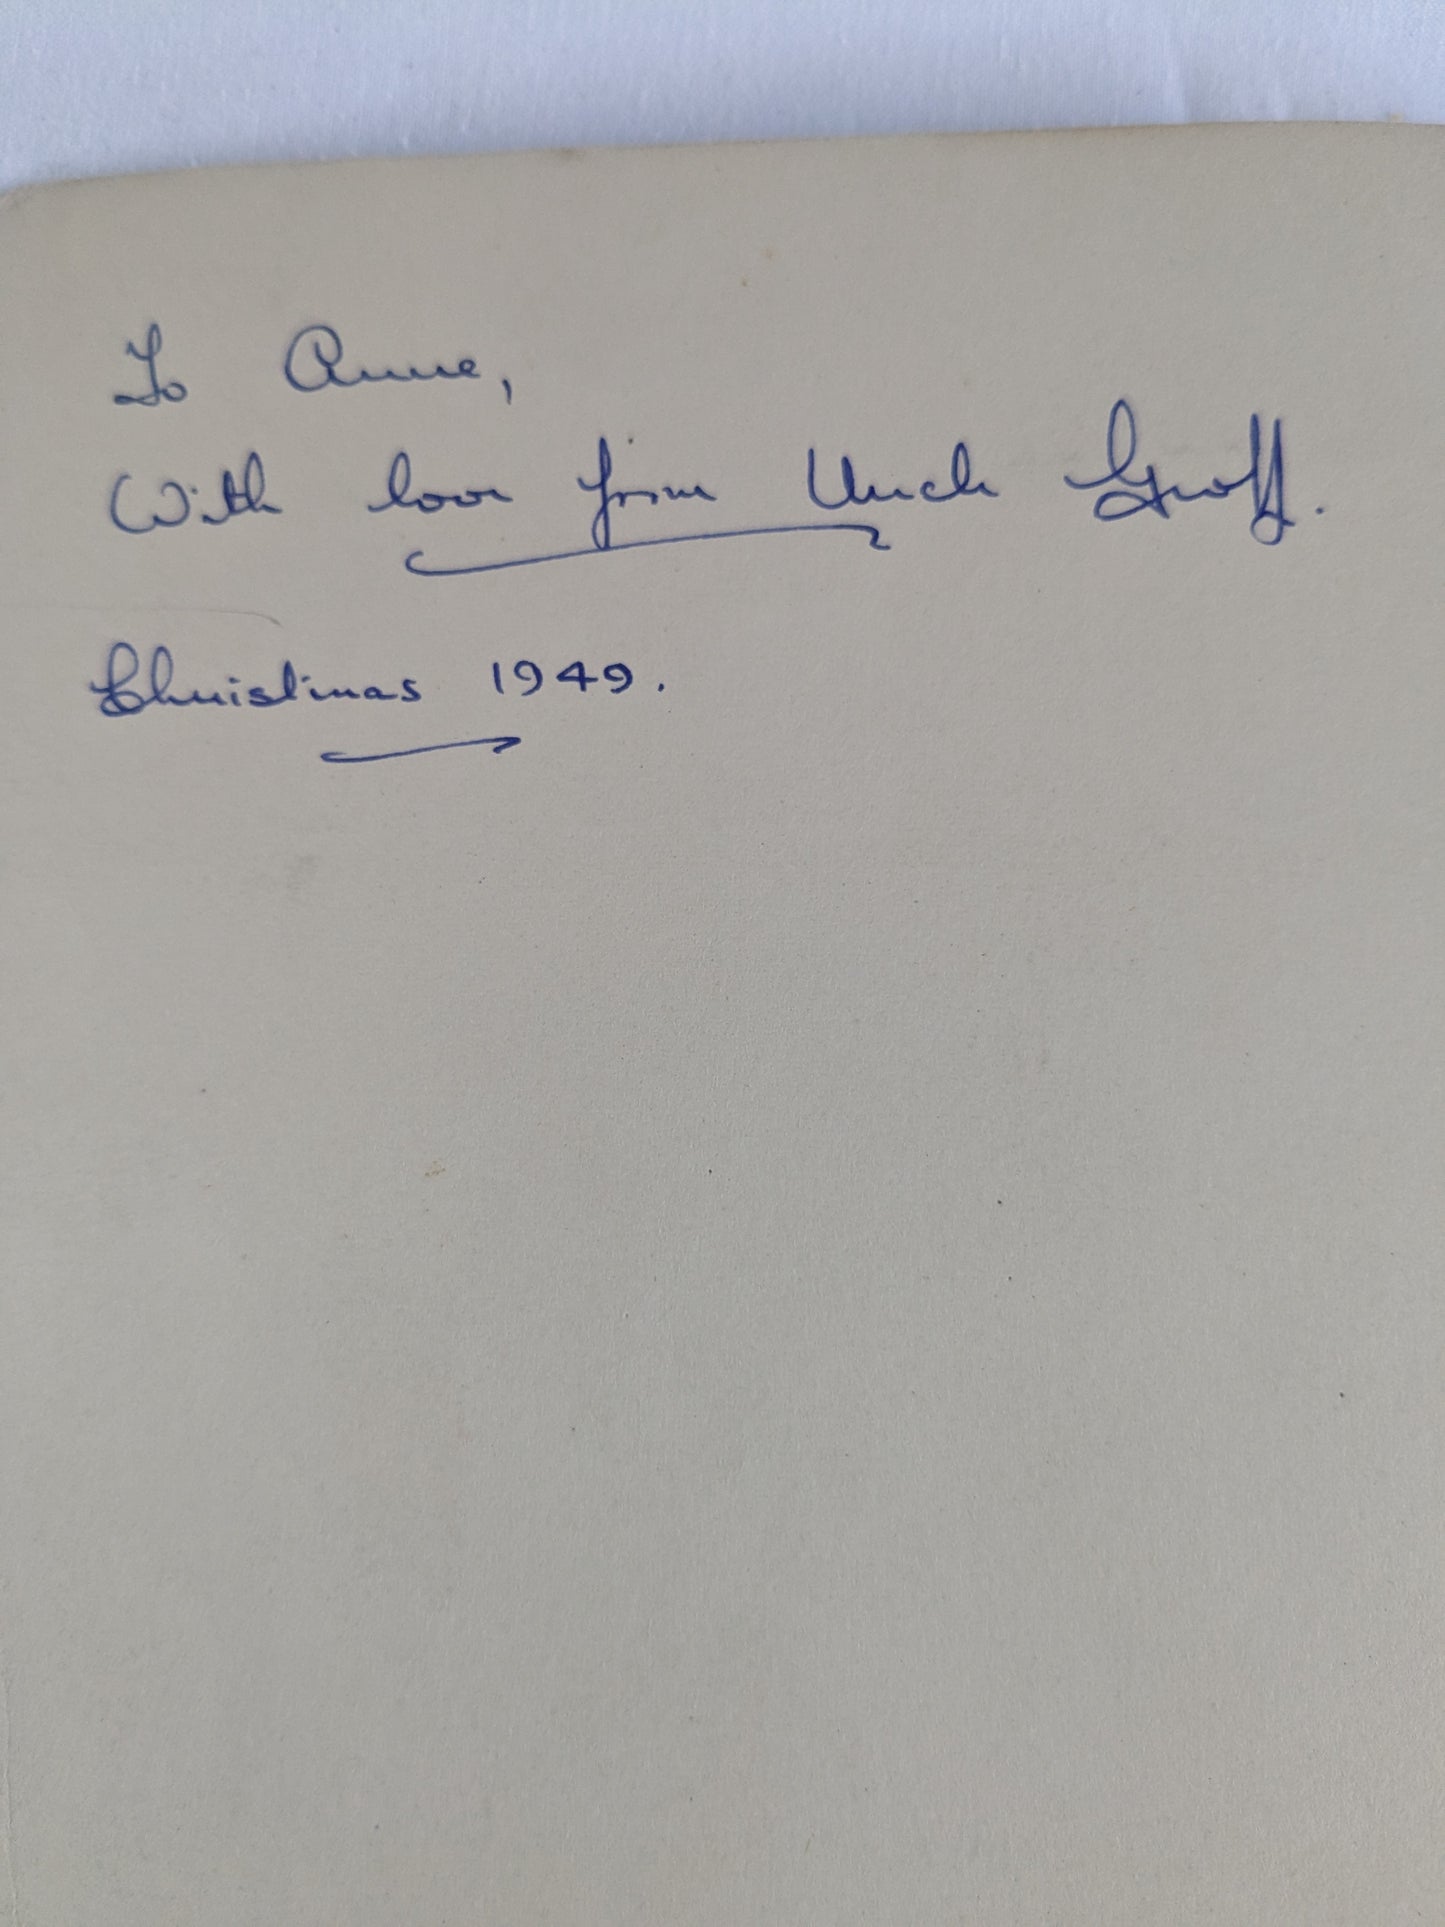 To Anne,
With love from Uncle Geoff.
Christmas 1949.